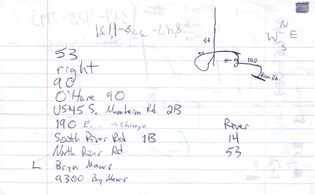 847-
53
right
90
O'Hare 90
US45 S. Manheim Rd 2B
190 E. → Chicago
South River Rd 1B
North River Rd
L Bryn Mawr
9300 Bryn Mawr
River
14
53
N
W E
S
53
90
190